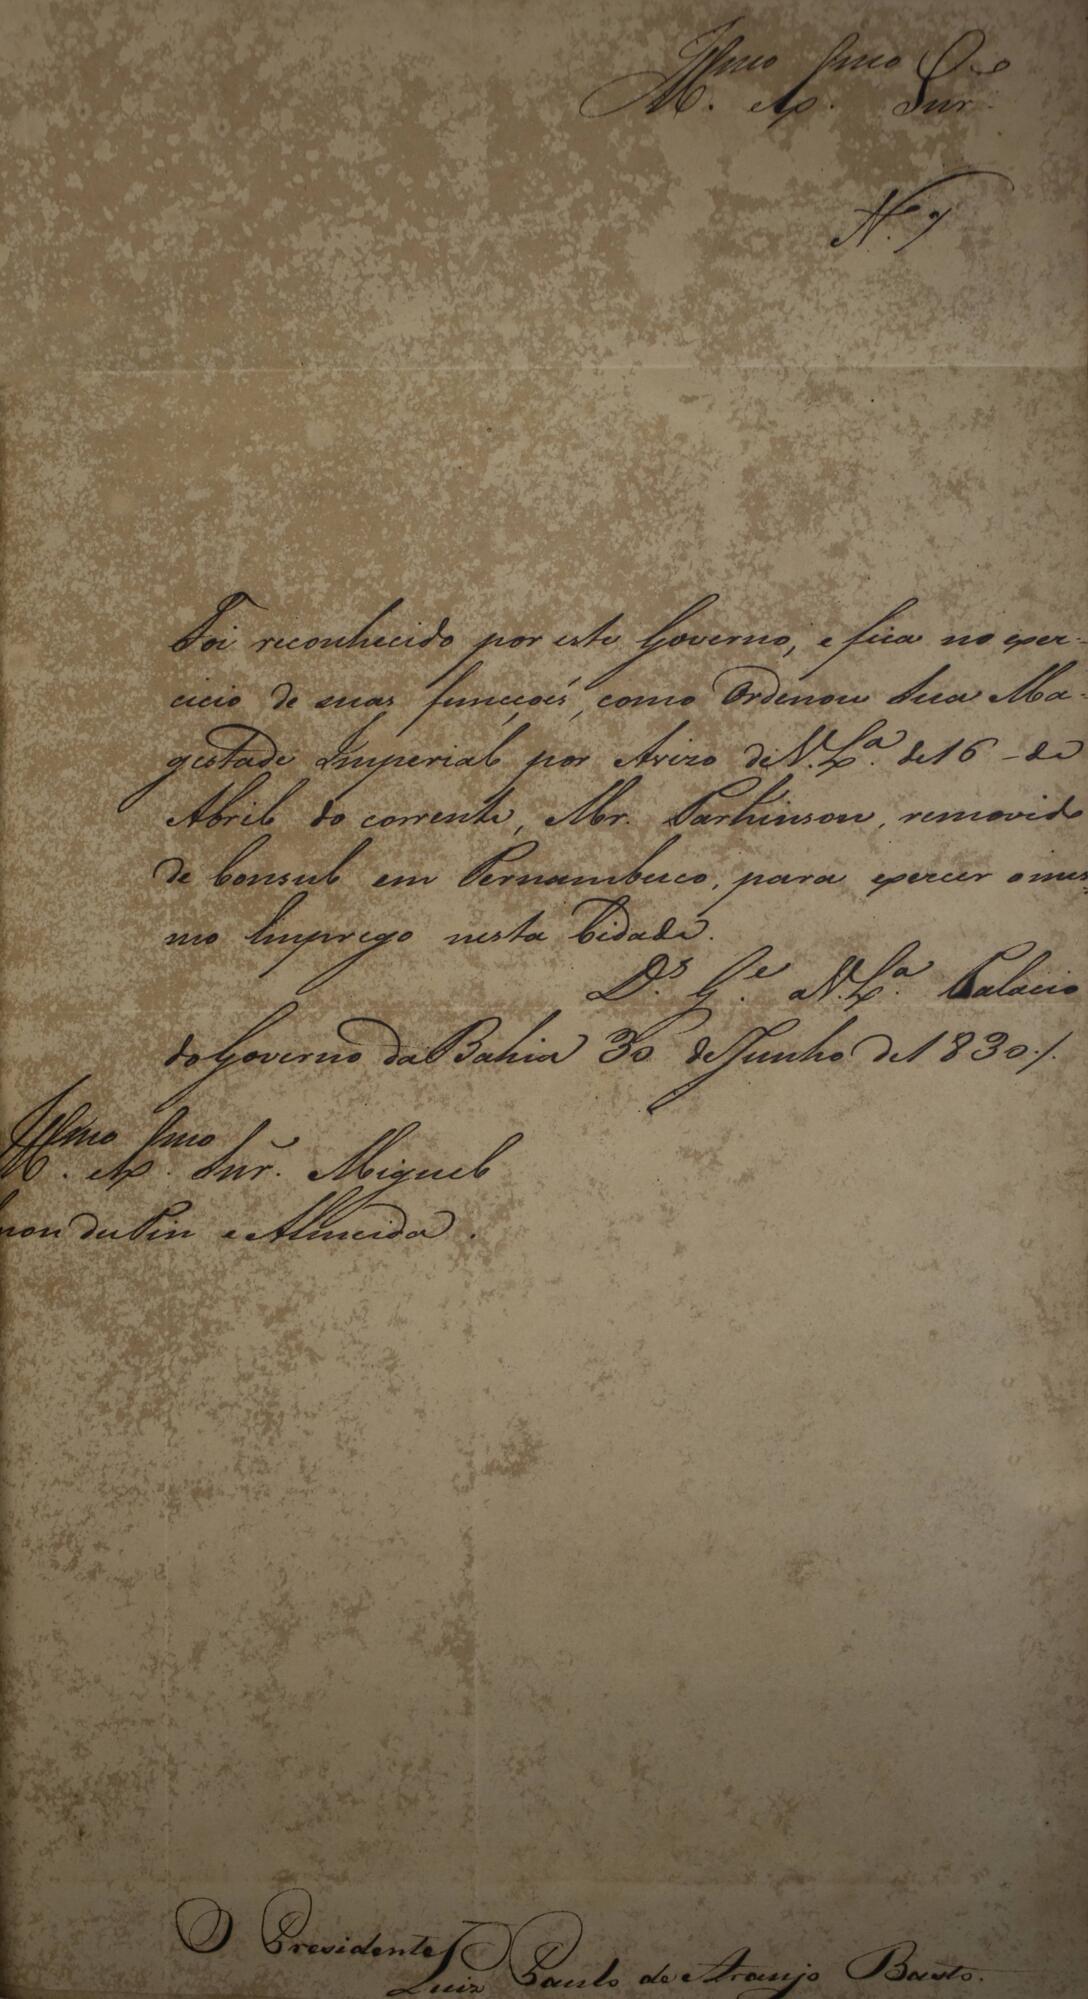 Illmo Exmo Snr.
N.º 7
Foi reconhecido por este Governo, e fica no exer-
cicio de suas funcçoes, como Ordenou Sua Ma-
gestade Imperial por Avizo de V. Exª. de 16 - de
Abril do corrente, Mr. Parkinson, removido
de Consul em Pernambuco, para exercer o mes-
mo Emprego nesta Cidade.
D.s G.e a V. Exª. Palacio
do Governo da Bahia 30 de Junho de 1830./.
Illmo Exmo Snr. Miguel
mon du Pin e Almeida.
O Presidente
Luiz Paulo de Araujo Basto.